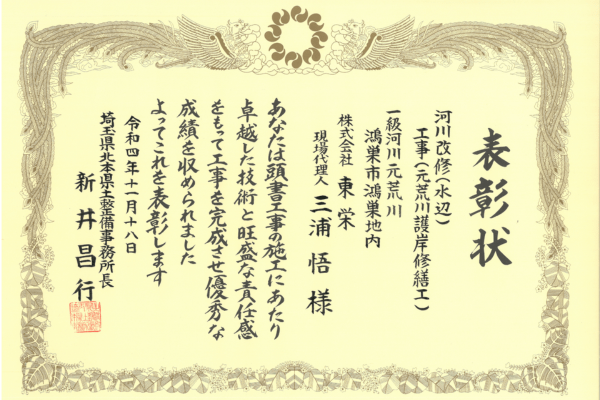 表彰状
河川改修(水辺)
工事(元荒川護岸修繕工)
一級河川元荒川
鴻巣市鴻巣地内
株式会社 東栄
現場代理人 三浦悟様
あなたは頭書工事の施工にあたり
卓越した技術と旺盛な責任感
をもって工事を完成させ優秀な
成績を収められました
よってこれを表彰します
令和四年十一月十八日
埼玉県北本県土整備事務所長
新井昌行